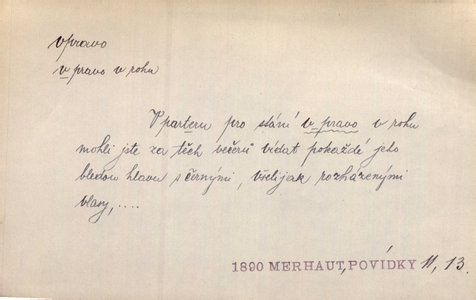 vpravo
v pravo v rohu
V parteru pro stání v pravo v rohu
mohli jste za těch večerů vídat pokaždé jeho
bledou hlavu s černými, všelijak rozházenými
vlasy,....
1890 MERHAUT, POVÍDKY II, 13.